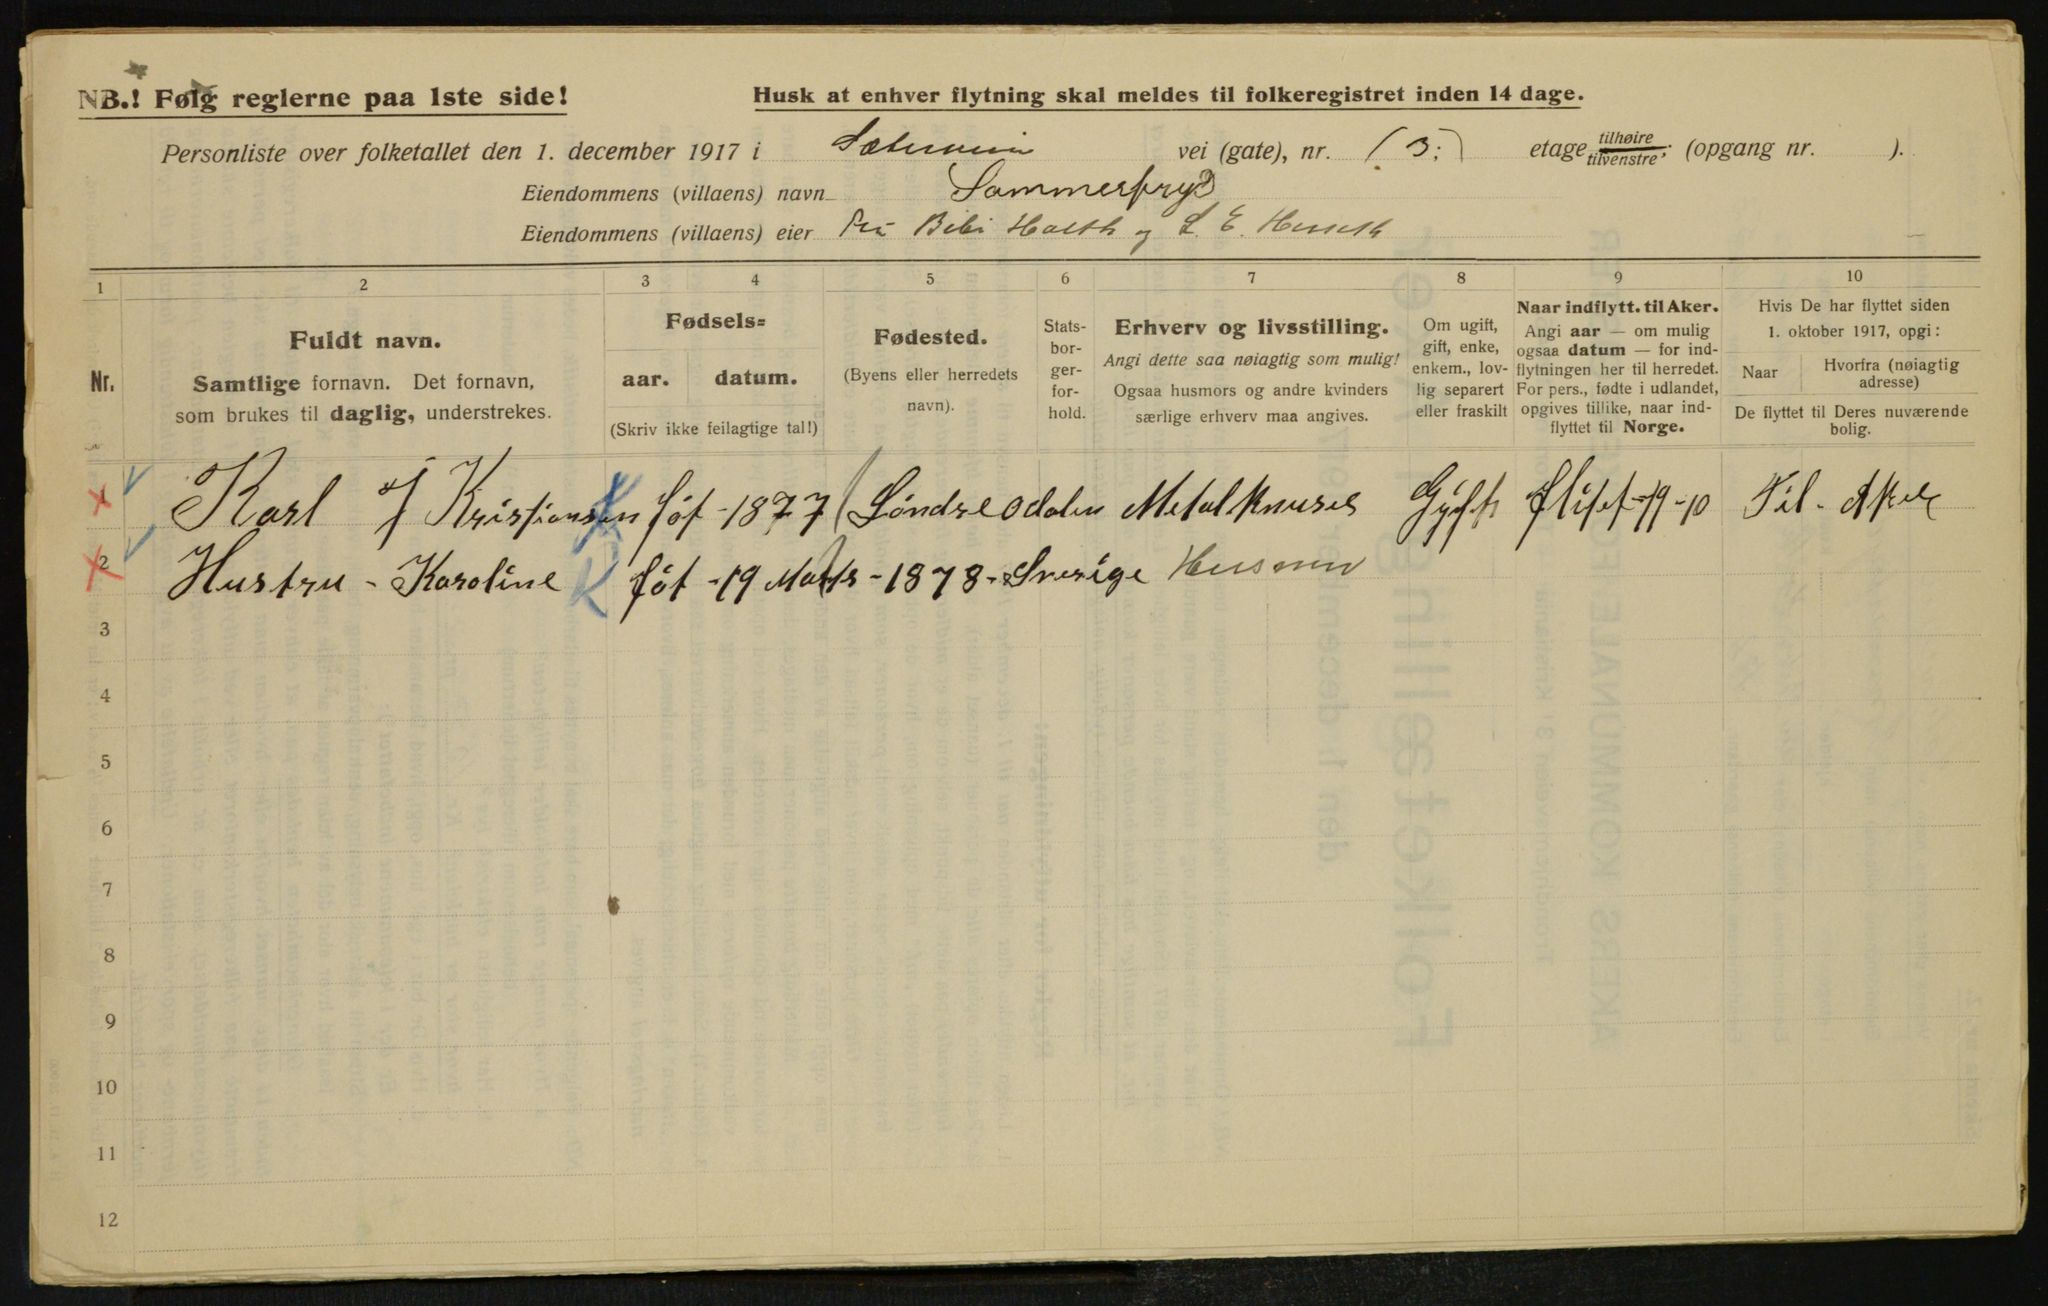 NB.! Følg reglerne paa 1ste side!
Husk at enhver flytning skal meldes til folkeregistret inden 14 dage.
Personliste over folketallet den 1. december 1917 i Sæterveien vei (gate), nr. (3;) etage tilhøire / tilvenstre; (opgang nr. ).
Eiendommens (villaens) navn Sommerfryd
Eiendommens (villaens) eier Bibi Holth og L. E.
1 2 3 4 5 6 7 8 9 10
Nr.
Fuldt navn.
Samtlige fornavn. Det fornavn,
som brukes til daglig, understrekes.
Fødsels=
aar. datum.
(Skriv ikke feilagtige tal!)
Fødested.
(Byens eller herredets
navn).
Stats-
bor-
ger-
for-
hold.
Erhverv og livsstilling.
Angi dette saa nøiagtig som mulig!
Ogsaa husmors og andre kvinders
særlige erhverv maa angives.
Om ugift,
gift, enke,
enkem., lov-
lig separert
eller fraskilt
Naar indflytt. til Aker.
Angi aar — om mulig
ogsaa datum — for ind-
flytningen her til herredet.
For pers., fødte i utlandet,
opgives tillike, naar ind-
flyttet til Norge.
Hvis De har flyttet siden
1. oktober 1917, opgi:
Naar
Hvorfra (nøiagtig
adresse)
De flyttet til Deres nuværende
bolig.
1 Karl J Kristiansen føt - 1877 Söndre Odalen Metalknuser Gift flitet - 19 - 10 Til - Aker
2 Hustru - Karoline føt - 19 Marts - 1878 - Sverige Husmor
3
4
5
6
7
8
9
10
11
12